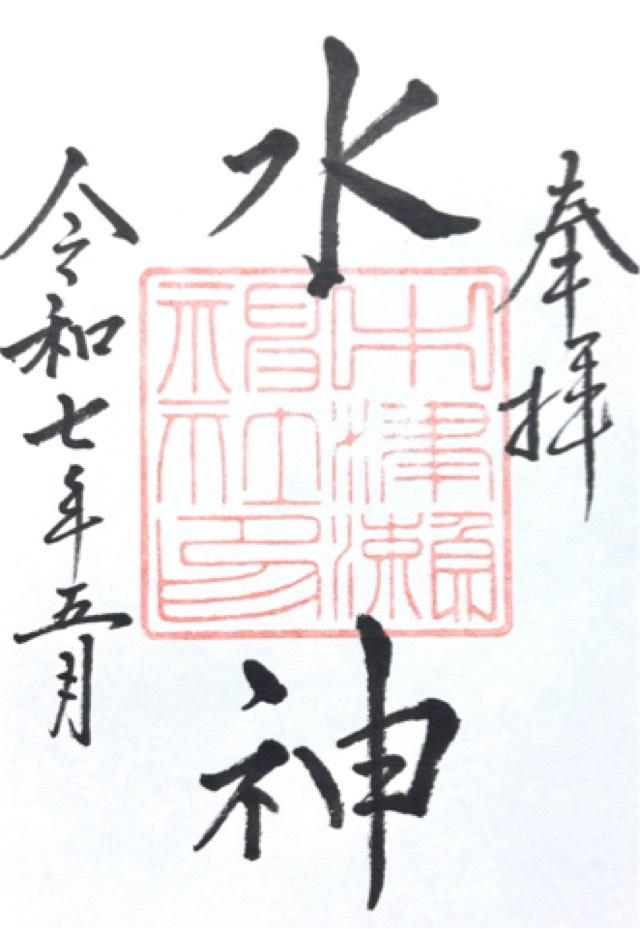 奉拝
水神
中津瀬
神社印
令和七年五月